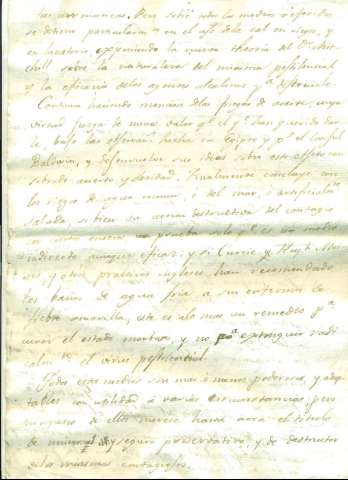 las dos mancas. Pero sobre todos los medios referidos
se detiene particularm.te en el uso de la cal en riego, y
en lavatorio, exponiendo la nueva theoria del Dr Mitt-
chill sobre la naturaleza del miasma pestilencial
y la eficacia de los agentes alcalinos p.a destruirlo
Continua haciendo mencion de las friegas de aceite, cuya
virtud juzga de menos valor q.e el q.e han querido dar-
le, bajo las observac.s hechas en Egipto p.r el Consul
Baldwin, y desenvuelve sus ideas sobre este asunto con
sobrado acierto y claridad. Finalmente concluye con
los riegos de agua comun, ó del mar, ó artificialm.te
salada, si bien su accion destructiva del contagio
en esta prueba solo q.e es un medio
indirecto aunque eficaz: y si Currie, y Hugh
y otros practicos ingleses, han recomendado
los baños de agua fria á sus enfermos de
fiebre amarilla, este es alo mas un remedio p.a
curar el estado morboso y no p.a extinguir radi-
calm.te el virus pestilencial.
Todos estos medios son mas ó menos poderosos, y adap-
tables con utilidad á varias circunstancias, pero
ninguno de ellos merece hasta aora el titulo
de universal y seguro preservativo, y de destructor
de los miasmas contagiosos.